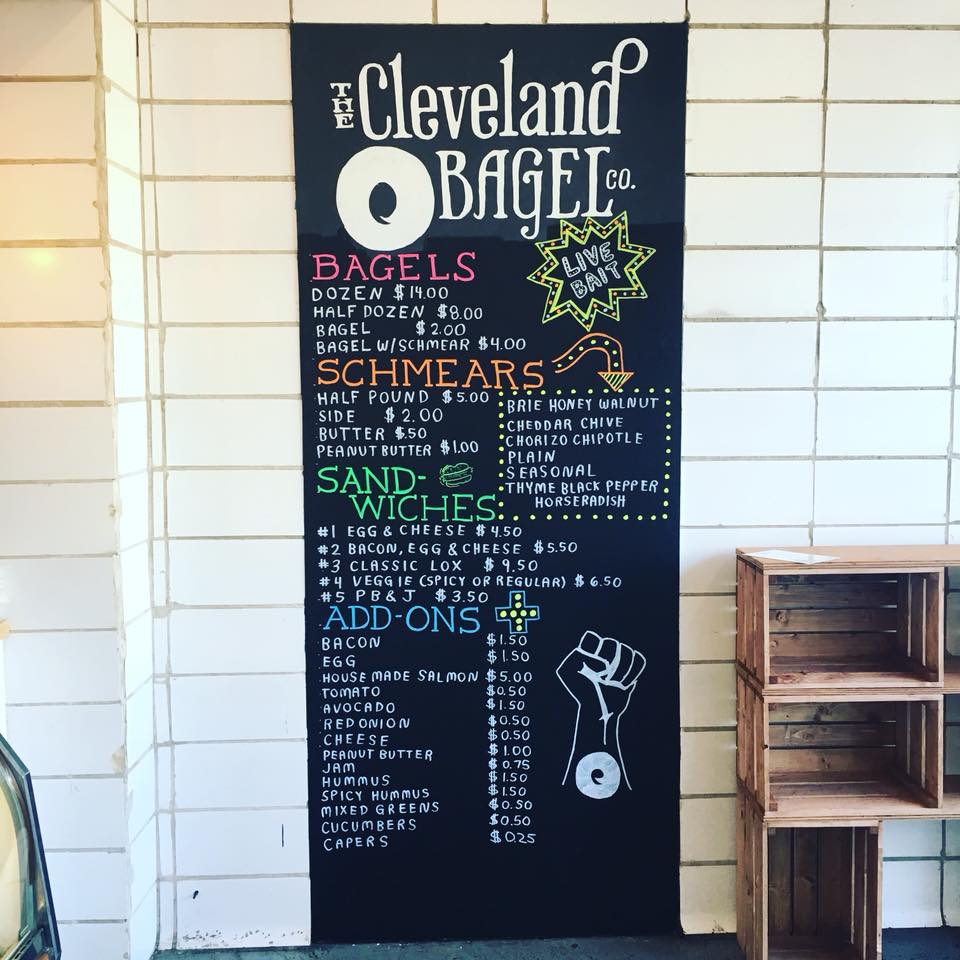 THE Cleveland
BAGEL CO.
LIVE
BAIT
BAGELS
DOZEN $14.00
HALF DOZEN $8.00
BAGEL $2.00
BAGEL W/SCHMEAR $4.00
SCHMEARS
HALF POUND $5.00
SIDE $2.00
BUTTER $.50
PEANUT BUTTER $1.00
BRIE HONEY WALNUT
CHEDDAR CHIVE
CHORIZO CHIPOTLE
PLAIN
SEASONAL
THYME BLACK PEPPER
HORSERADISH
SAND-
WICHES
#1 EGG & CHEESE $4.50
#2 BACON, EGG & CHEESE $5.50
#3 CLASSIC LOX $9.50
#4 VEGGIE (SPICY OR REGULAR) $6.50
#5 PB & J $3.50
ADD-ONS
BACON $1.50
EGG $1.50
HOUSE MADE SALMON $5.00
TOMATO $0.50
AVOCADO $1.50
RED ONION $0.50
CHEESE $0.50
PEANUT BUTTER $1.00
JAM $0.75
HUMMUS $1.50
SPICY HUMMUS $1.50
MIXED GREENS $0.50
CUCUMBERS $0.50
CAPERS $0.25